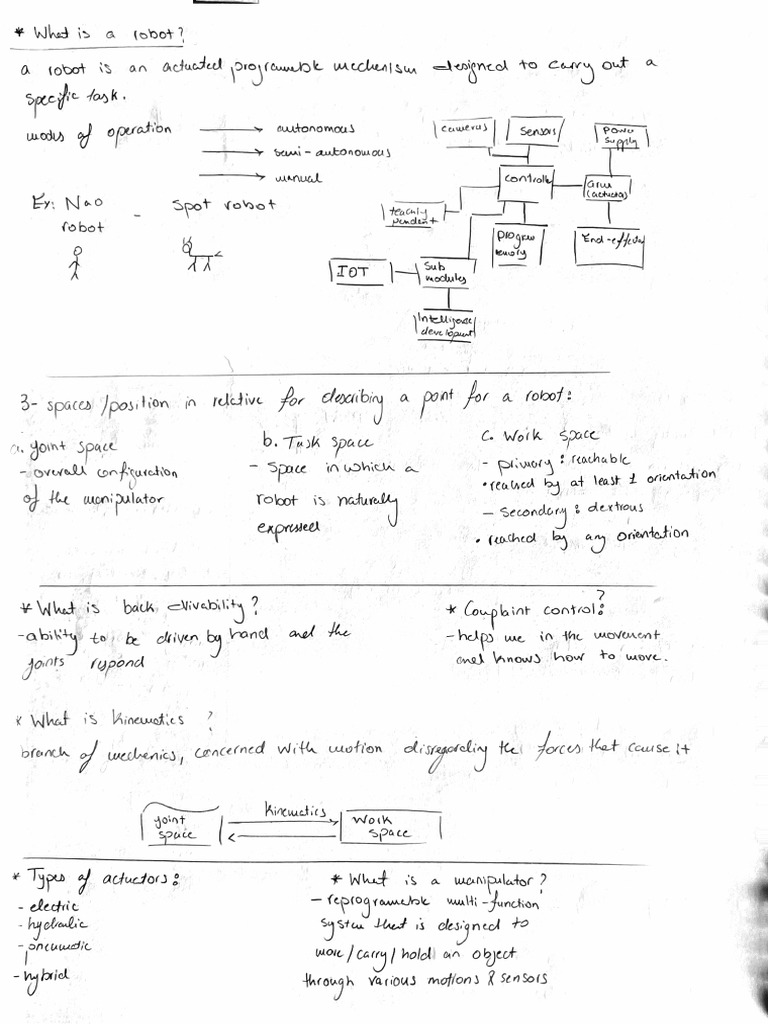 * What is a robot?
a robot is an actuated programable mechenism designed to carry out a
specific task.
modes of operation
autonomous
semi-autonomous
manual
Ex: Nao
robot
- Spot robot
cameras
sensors
power
supply
controlle
arm
(actuators)
teachly
pendent
program
memory
End-effector
IOT
Sub
modules
Intelligence
development
3- spaces /position in relative for describing a point for a robot:
a. joint space
- overall configuration
of the manipulator
b. Task space
- Space in which a
robot is naturally
expressed
c. Work space
- primary : reachable
• reached by at least 1 orientation
- secondary : dextrous
• reached by any orientation
* What is back drivability?
- ability to be driven by hand and the
joints rspond
* Complaint control: ?
- helps me in the movement
and knows how to move.
* What is Kinematics ?
branch of mechenics, concerned with motion disregarding the forces that cause it
joint
space
Kinematics
Work
space
* Types of actuators:
- electric
- hydraulic
- pneumatic
- hybrid
* What is a manipulator?
- reprogramable multi-function
system that is designed to
move/carry/hold an object
through various motions & sensors